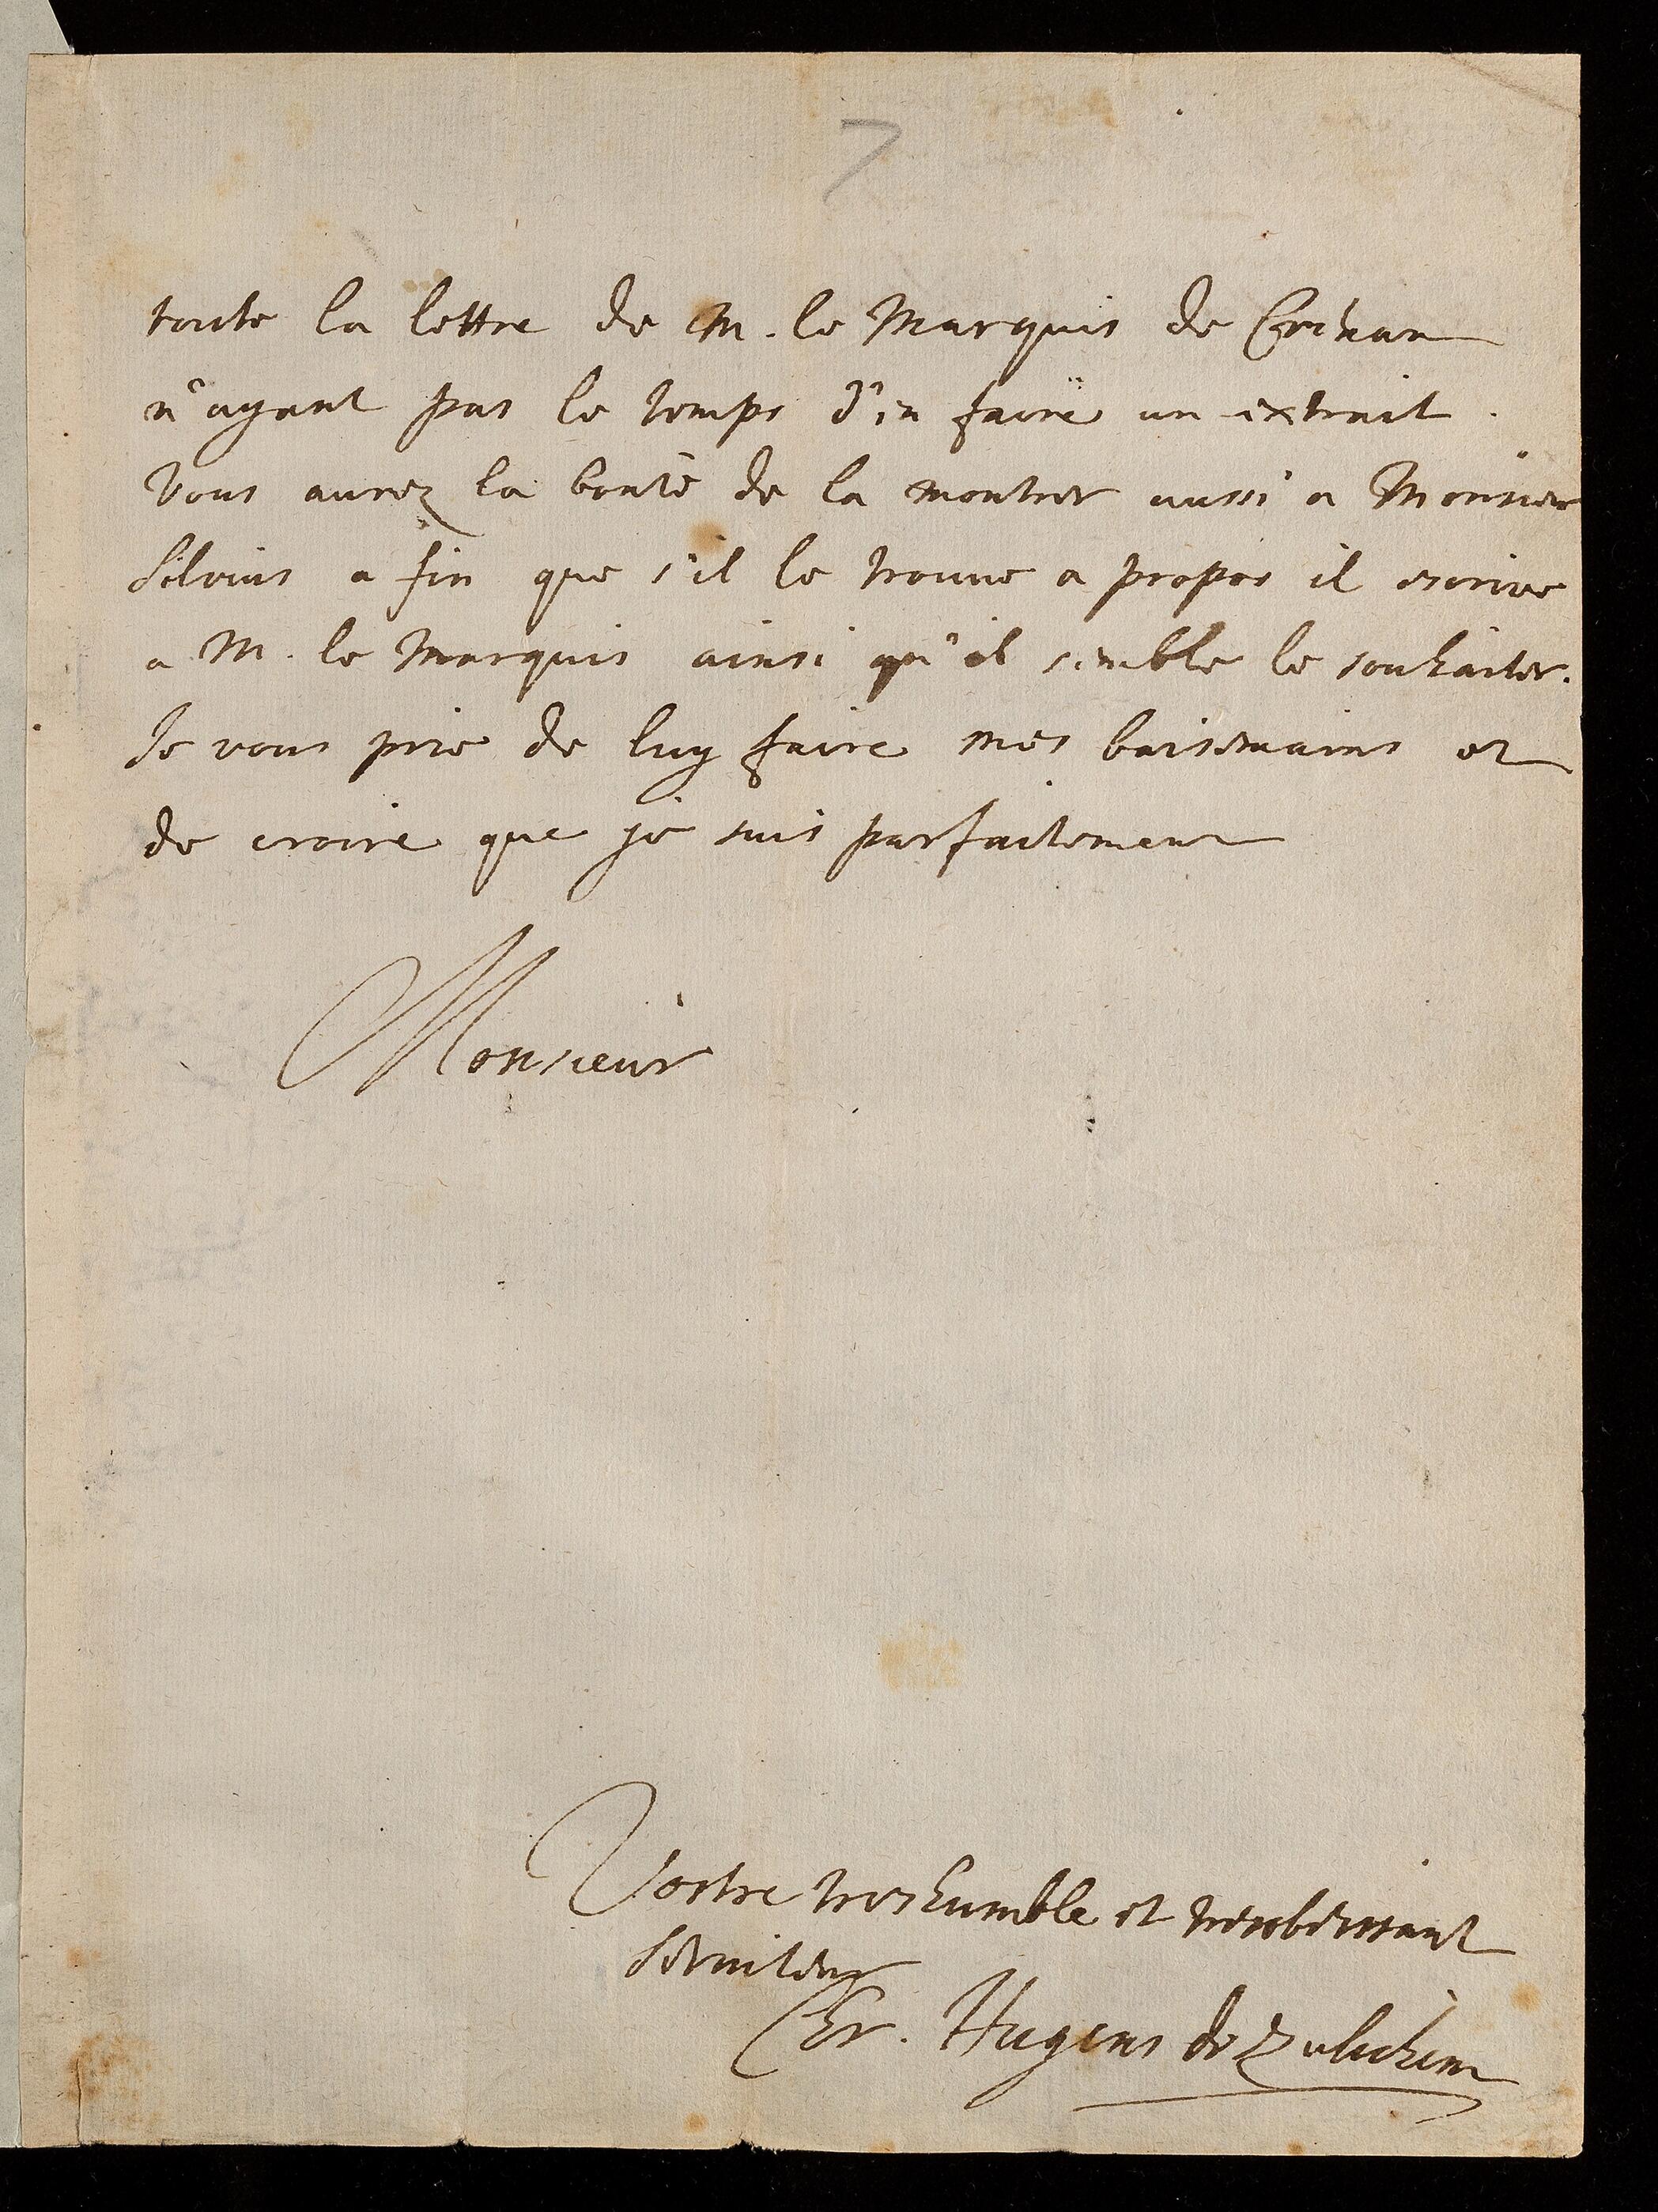 7
toute la lettre de M. le Marquis de
n'ayant pas le temps d'en faire un extrait.
Vous aurez la bonté de la montrer aussi a Monsieur
Silvius a fin que s'il le trouue a propos il escrive
a M. le Marquis ainsi qu'il semble le souhaiter.
Je vous prie de luy faire mes baisemains et
de croire que je suis parfaitement
Monsieur
Vostre treshumble et tresobeissant
serviteur
Chr. Hugens de Zulichem